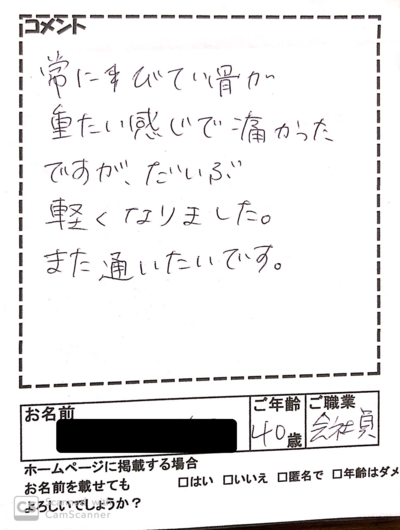 コメント
常にすびてい骨が
重たい感じで痛かった
ですが、だいぶ
軽くなりました。
また通いたいです。
お名前
ご年齢
ご職業
40歳
会社員
ホームページに掲載する場合
お名前を載せても
よろしいでしょうか？
□はい □いいえ □匿名で □年齢はダメ
CS
CamScanner